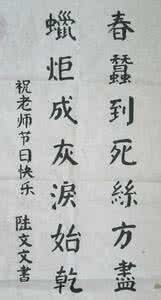 春蠶到死絲方盡
蠟炬成灰淚始乾
祝老师节日快乐 陆文文書